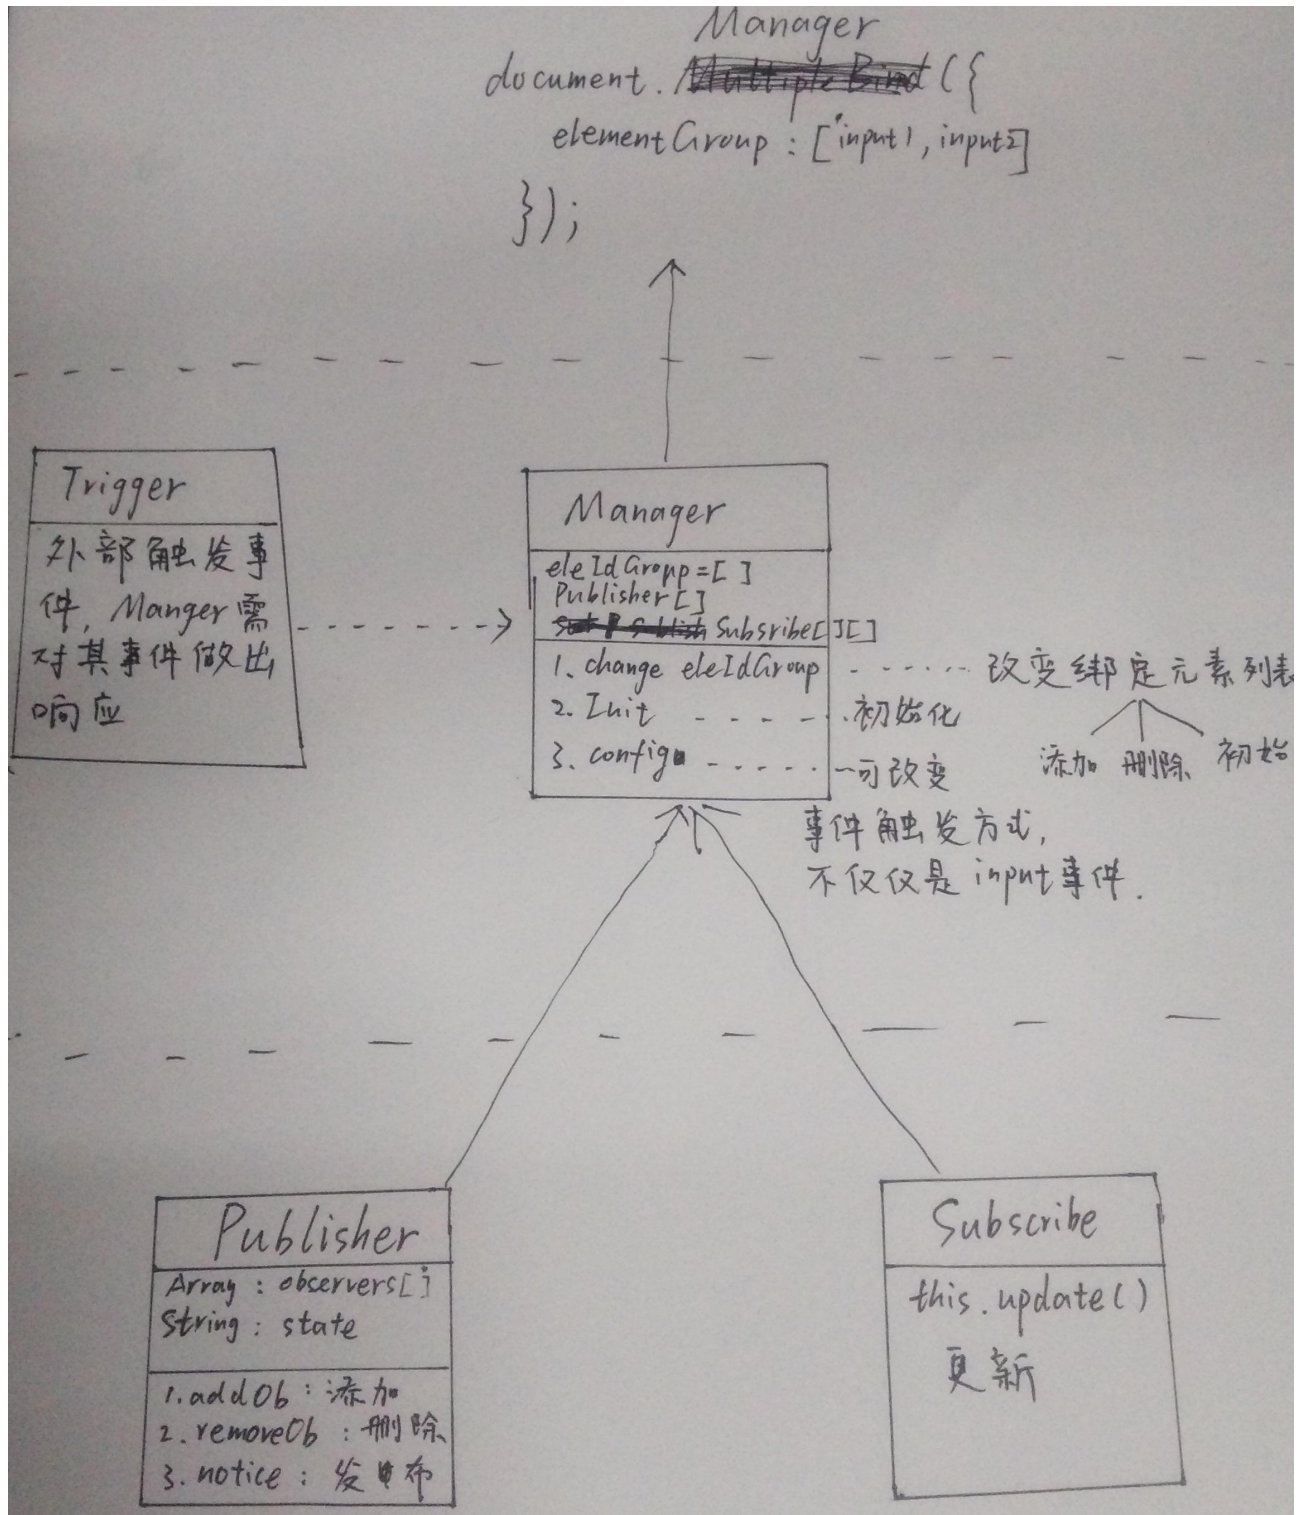 Manager
document. Multiple Bind ({
elementGroup : [input1, input2]
});
Trigger
外部触发事
件, Manger需
对其事件做出
响应
Manager
eleIdGroup=[ ]
Publisher[]
Subsribe[][]
1. change eleIdGroup
2. Init
3. config
改变绑定元素列表
添加 删除 初始
初始化
可改变
事件触发方式,
不仅仅是input事件.
Publisher
Array : observers[]
String : state
1. addOb : 添加
2. removeOb : 删除
3. notice : 发布
Subscribe
this.update()
更新